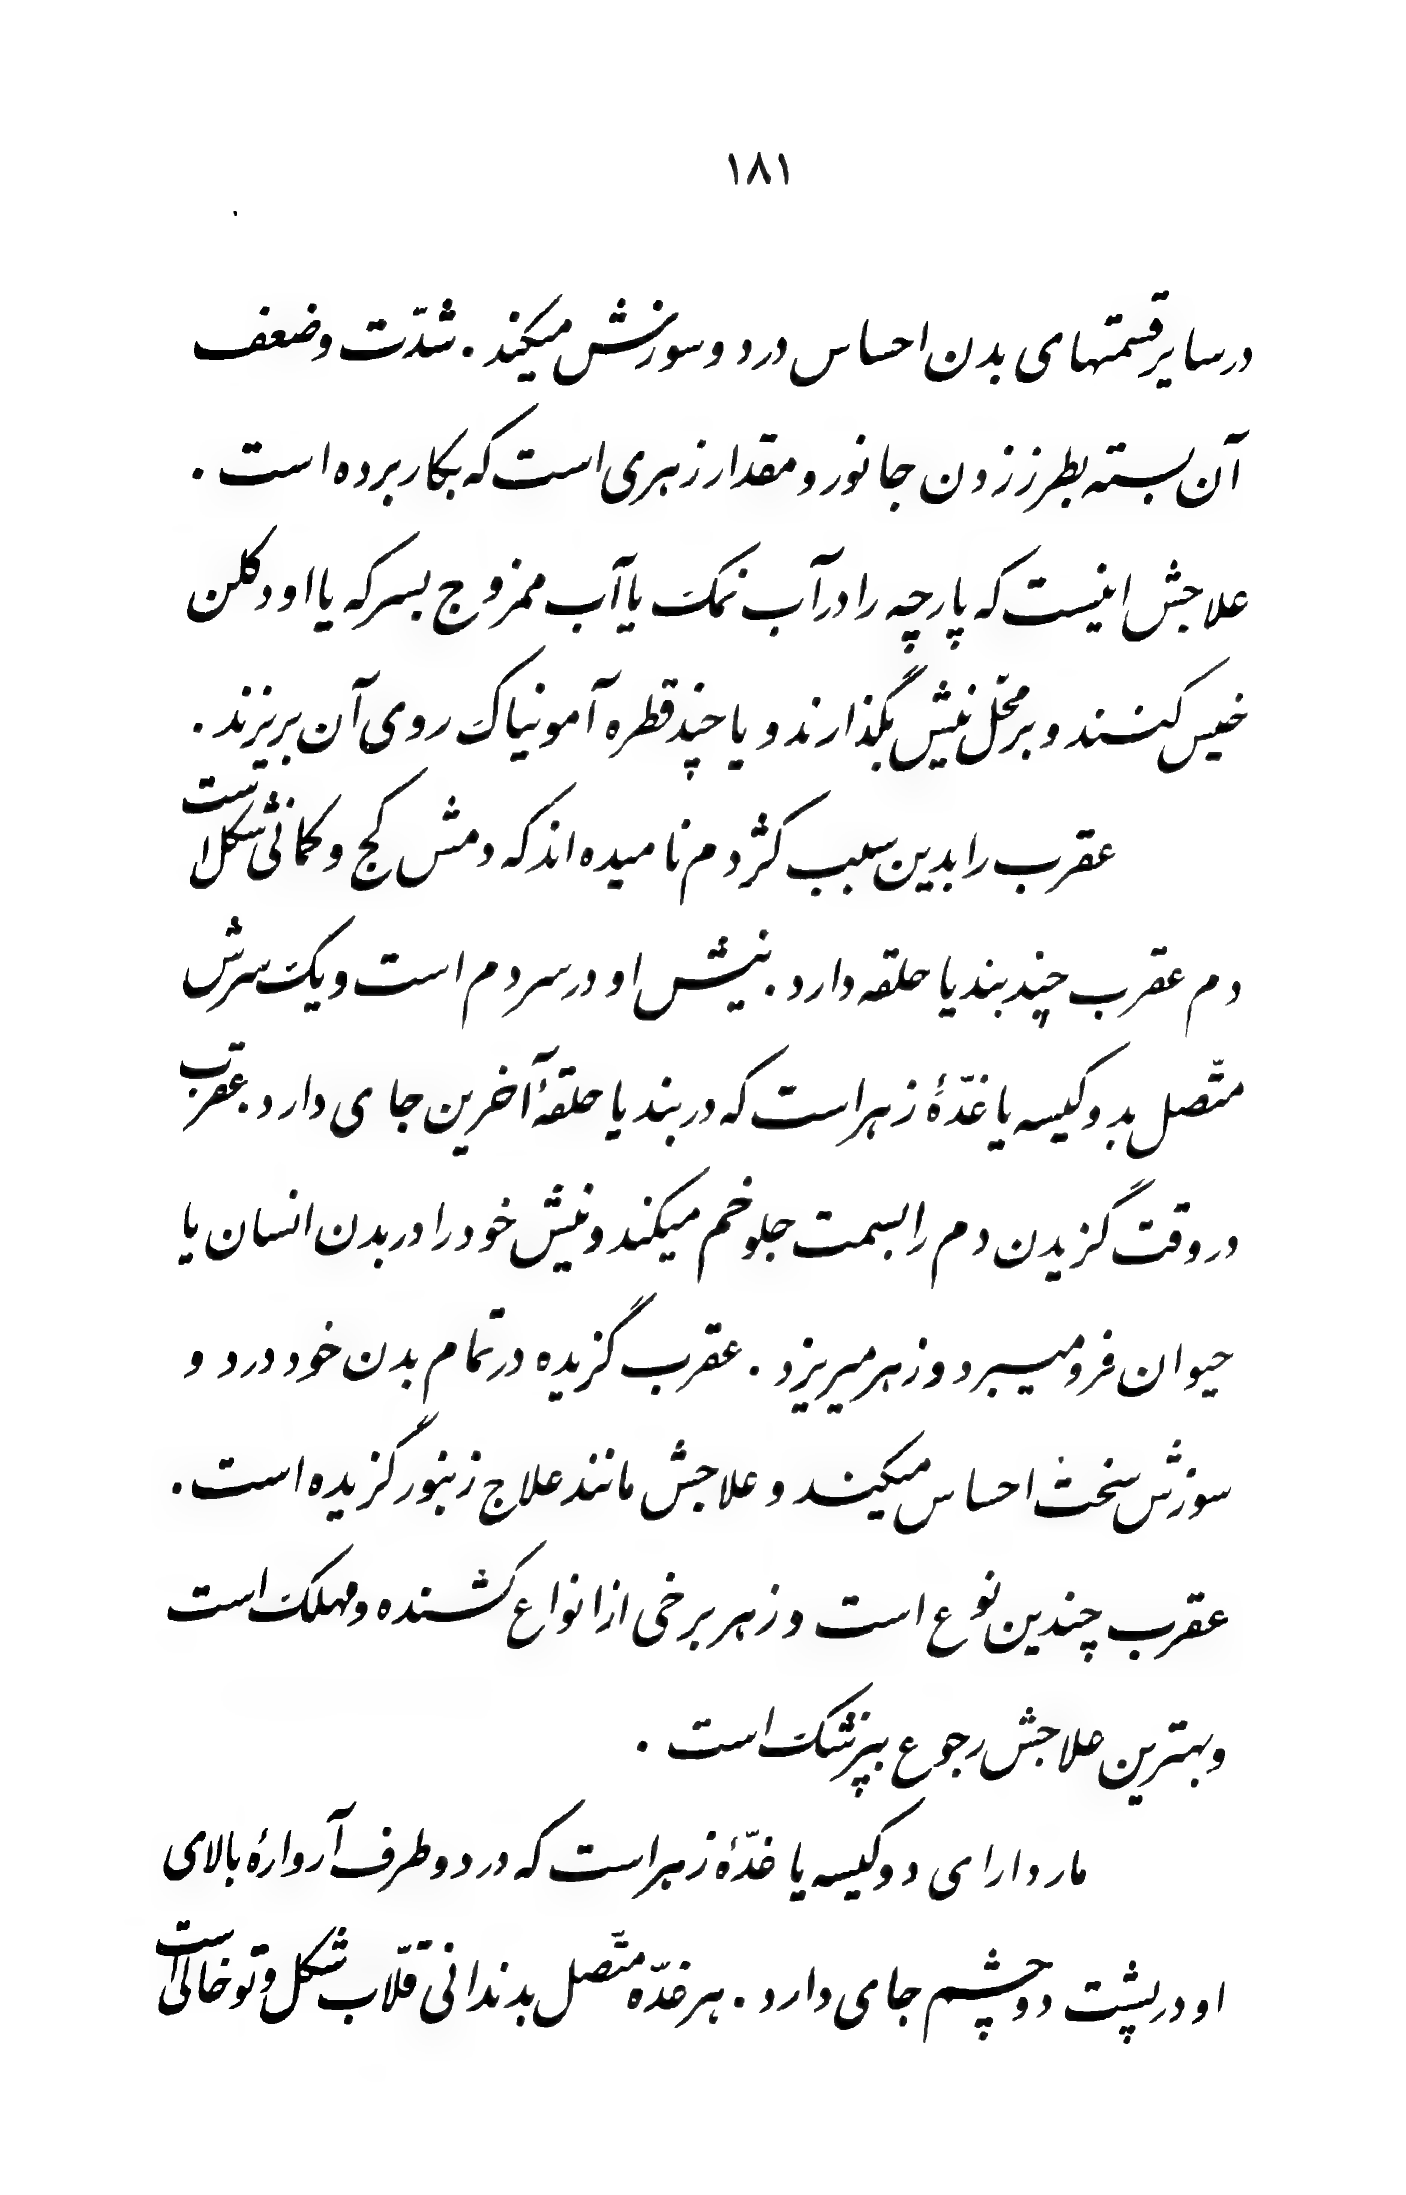 ۱۸۱
در سایر قسمتهای بدن احساس درد و سوزش میکند . شدّت و ضعف
آن بسته بطرز زدن جانور و مقدار زهری است که بکار برده است .
علاجش اینست که پارچه را در آب نمک یا آب ممزوج بسرکه یا اودکلن
خیس کنند و بر محّل نیش بگذارند و یا چند قطره آمونیاک روی آن بریزند .
عقرب را بدین سبب کژدم نامیده اند که دمش کج و کمانی شکل است
دم عقرب چند بند یا حلقه دارد . نیش او در سر دم است و یک سرش
متّصل بدو کیسه یا غدّهٔ زهر است که در بند یا حلقهٔ آخرین جای دارد . عقرب
در وقت گزیدن دم را بسمت جلو خم میکند و نیش خود را در بدن انسان یا
حیوان فرو میبرد و زهر میریزد . عقرب گزیده در تمام بدن خود درد و
سوزش سخت احساس میکند و علاجش مانند علاج زنبور گزیده است .
عقرب چندین نوع است و زهر برخی از انواع کشنده و مهلک است
و بهترین علاجش رجوع بپزشک است .
مار دارای دو کیسه یا غدّهٔ زهر است که در دو طرف آروارهٔ بالای
او در پشت دو چشم جای دارد . هر غدّه متّصل بدندانی قلّاب شکل و تو خالی است